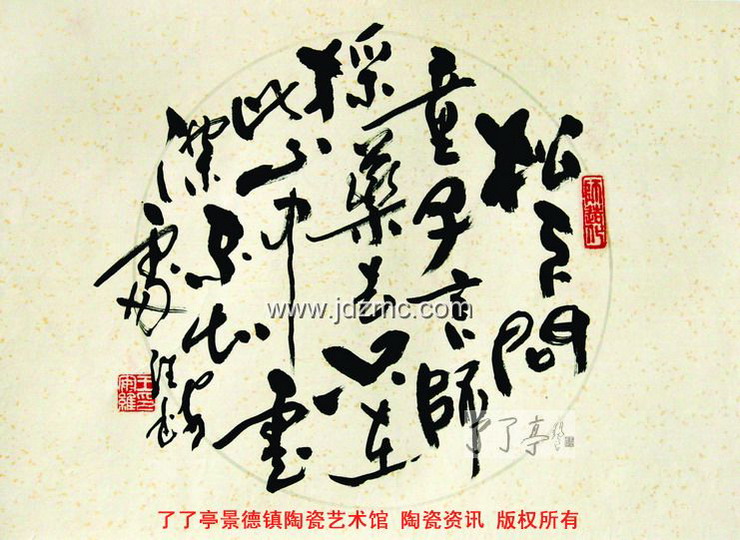 松下問
童子言師
採藥去只在
此山中雲
深不知
處
www.jdzmc.com
了了亭
了了亭景德镇陶瓷艺术馆 陶瓷资讯 版权所有